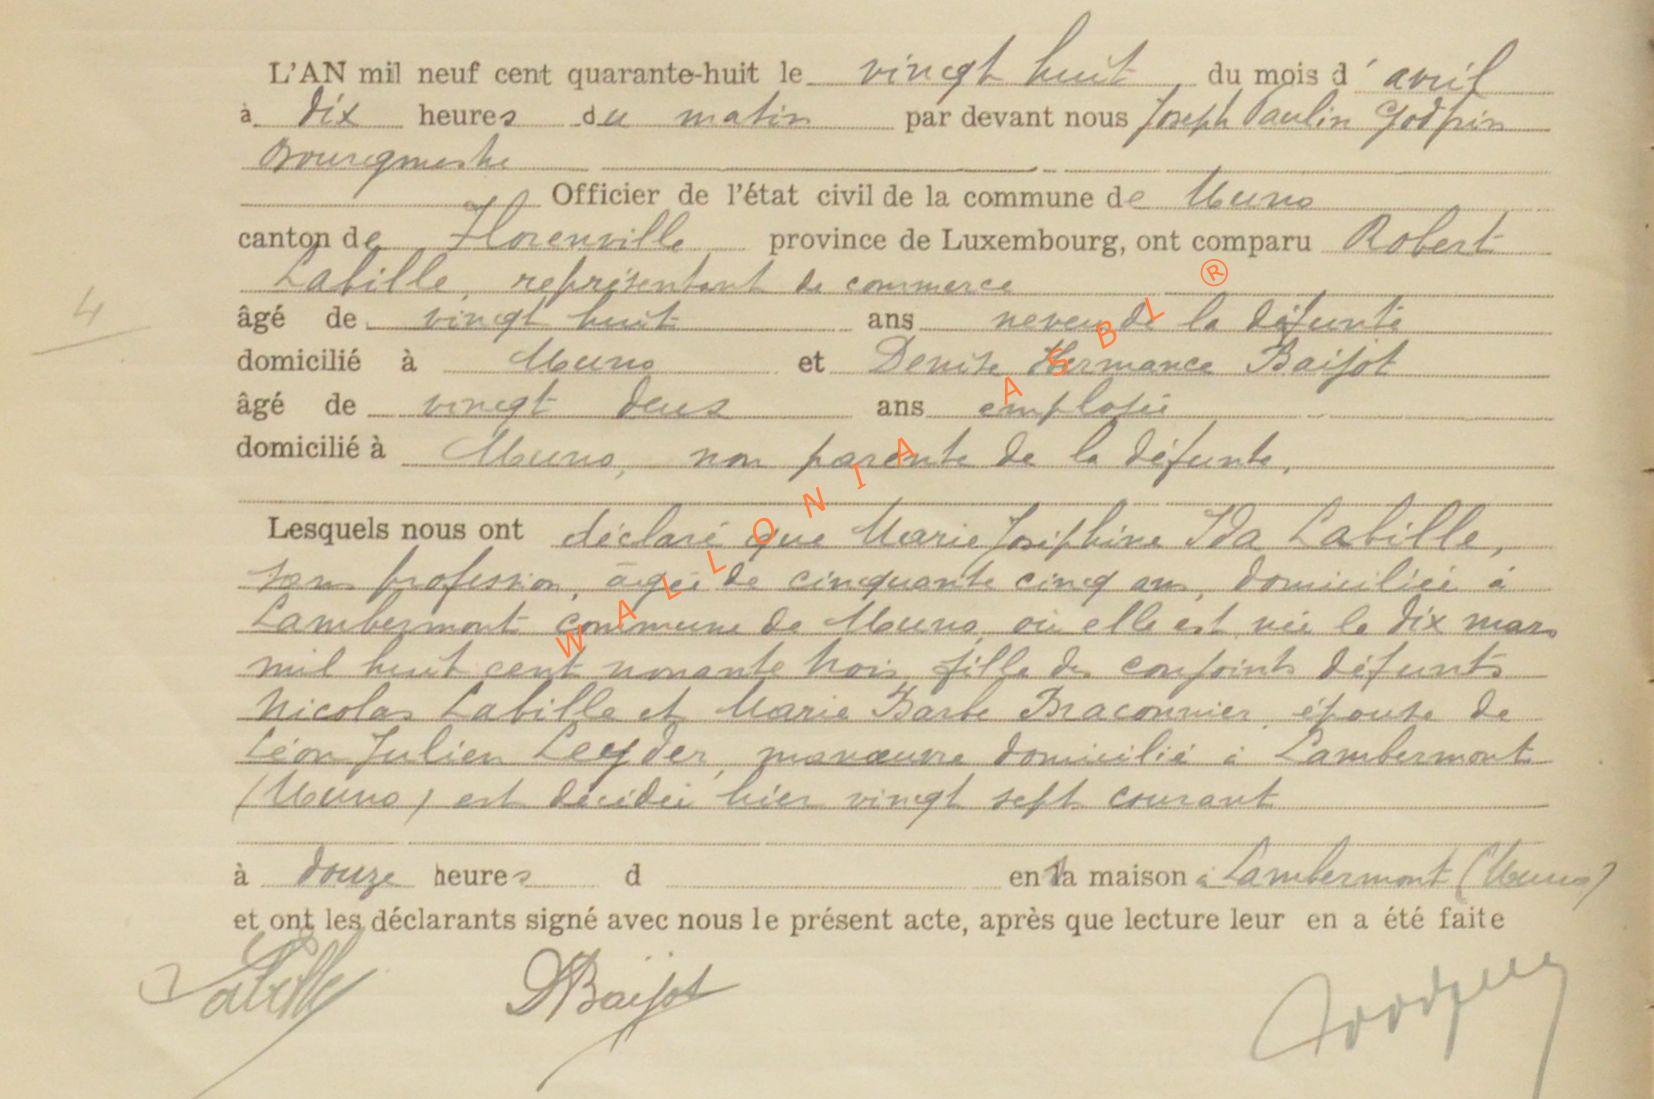 L'AN mil neuf cent quarante-huit le vingt huit du mois d' avril
à dix heures du matin par devant nous Joseph Paulin Godfrin
Bourgmestre
Officier de l'état civil de la commune de Muno
canton de Florenville province de Luxembourg, ont comparu Robert
Labille, représentant de commerce
âgé de vingt huit ans neveu de la défunte
domicilié à Muno et Denise Hermance Baijot
âgé de vingt deux ans employée
domicilié à Muno, non parente de la défunte.
Lesquels nous ont déclaré que Marie Joséphine Ida Labille,
sans profession, âgée de cinquante cinq ans, domiciliée à
Lambermont commune de Muno, où elle est née le dix mars
mil huit cent nonante trois, fille des conjoints défunts
Nicolas Labille et Marie Barbe Braconnier, épouse de
Léon Julien Leyder, manœuvre domicilié à Lambermont
(Muno) est décédée hier vingt sept courant
à douze heures d en la maison à Lambermont (Muno)
et ont les déclarants signé avec nous le présent acte, après que lecture leur en a été faite
Labille DBaijot Godfrin
4
WALLONIA ASBL ®